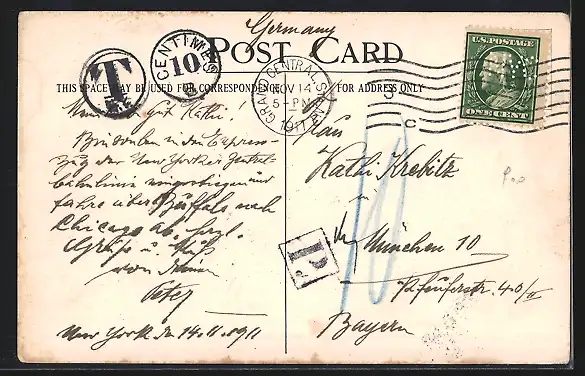 Germany
POST CARD
THIS SPACE MAY BE USED FOR CORRESPONDENCE
FOR ADDRESS ONLY
T
CENTIMES
10
GRAND CENTRAL STA.
NOV 14
5-PM
1911
3
C
U.S. POSTAGE
ONE CENT
Mein gut Kathi!
Bin soeben in den Express-
Zug der New Yorker Zentral-
bahnlinie eingestiegen und
fahre über Buffalo nach
Chicago ab. Herzl.
Grüße u. Kuß
von Deinem
Peter
New York den 14.11.1911
Frau
Kathi Krebitz
in
München 10
Pfeuferstr. 40/II
Bayern
10
P.